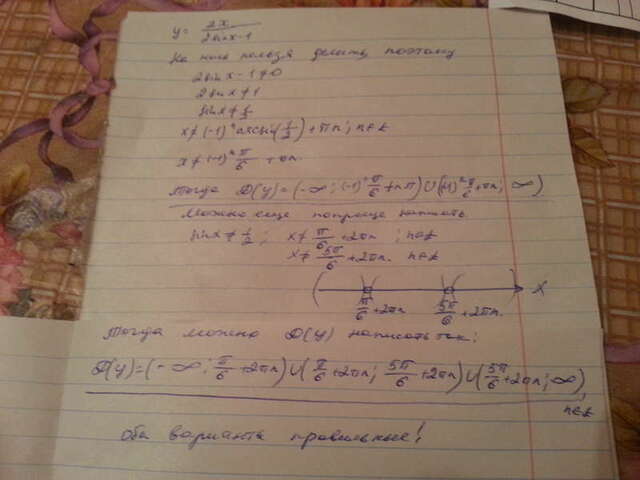 y = 2x / 2sinx-1
На ноль нельзя делить, поэтому
2sinx-1≠0
2sinx≠1
sinx≠1/2
x≠(-1)ⁿarcsin(1/2)+πn; n∈Z
x≠(-1)ⁿ π/6 + πn.
Тогда D(y)=(-∞; (-1)ⁿ π/6 + πn) ∪ ((-1)ⁿ π/6 + πn; ∞)
Можно еще попроще написать
sinx≠1/2; x≠π/6+2πn; n∈Z
x≠5π/6+2πn. n∈Z
x
π/6+2πn 5π/6+2πn.
Тогда можно D(y) написать так:
D(y)=(-∞; π/6+2πn)∪(π/6+2πn; 5π/6+2πn)∪(5π/6+2πn; ∞),
n∈Z
оба варианта правильные!